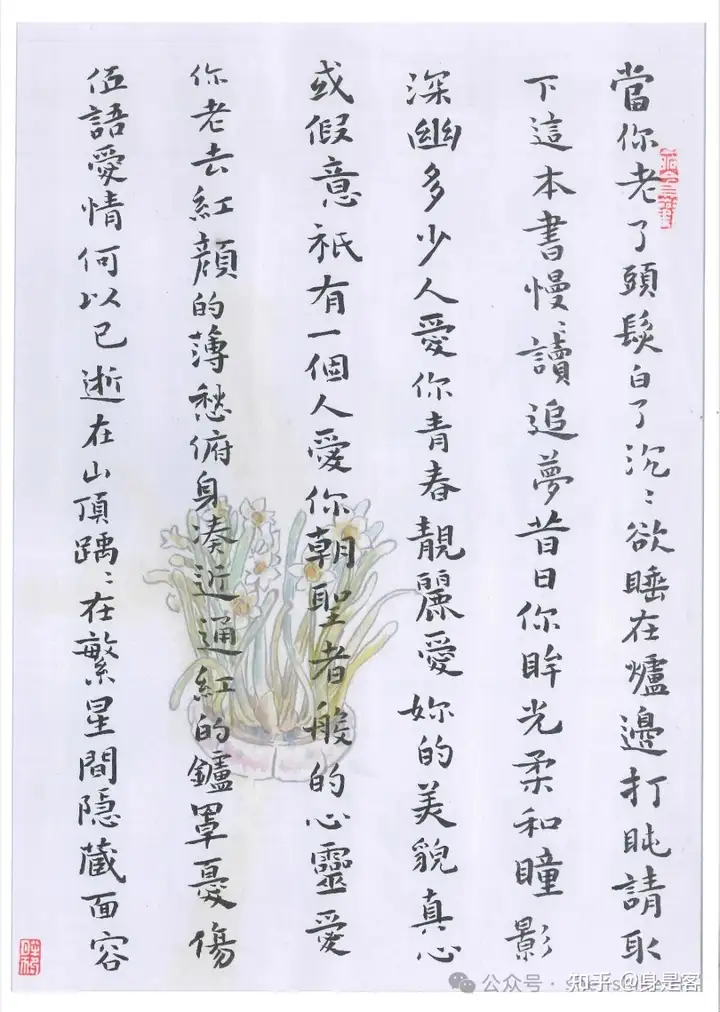 當你老了頭髮白了沉〻欲睡在爐邊打盹請取
下這本書慢〻讀追夢昔日你眸光柔和瞳影
深幽多少人愛你青春靚麗愛妳的美貌真心
或假意祇有一個人愛你朝聖者般的心靈愛
你老去紅顏的薄愁俯身湊近通紅的鑪罩憂傷
低語愛情何以已逝在山頂踽〻在繁星間隐藏面容
公众号·
知乎 @身是客